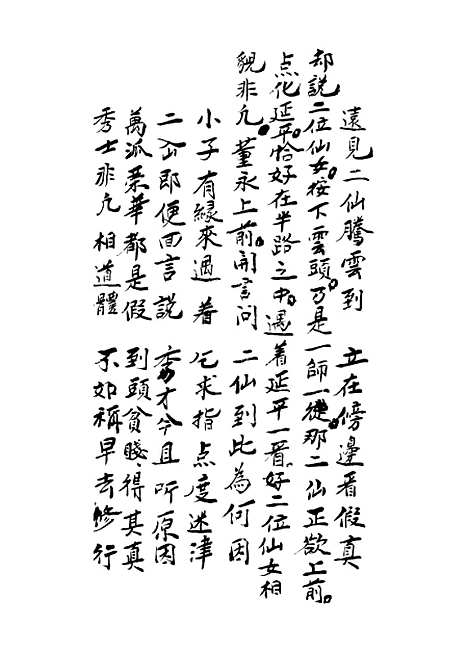 遠見二仙騰雲到　立在傍邊看假真
却說二位仙女。按下雲頭。乃是一師一徒。那二仙正欲上前。
点化延平。恰好在半路之中。遇着延平一看。好二位仙女相
貌非凡。董永上前。開言問　二仙到此為何因
小子有緣來遇着　乞求指点度迷津
二仚即便回言說　秀才今且听原因
萬派荣華都是假　到頭貧賤得其真
秀士非凡相道體　不如稱早去修行